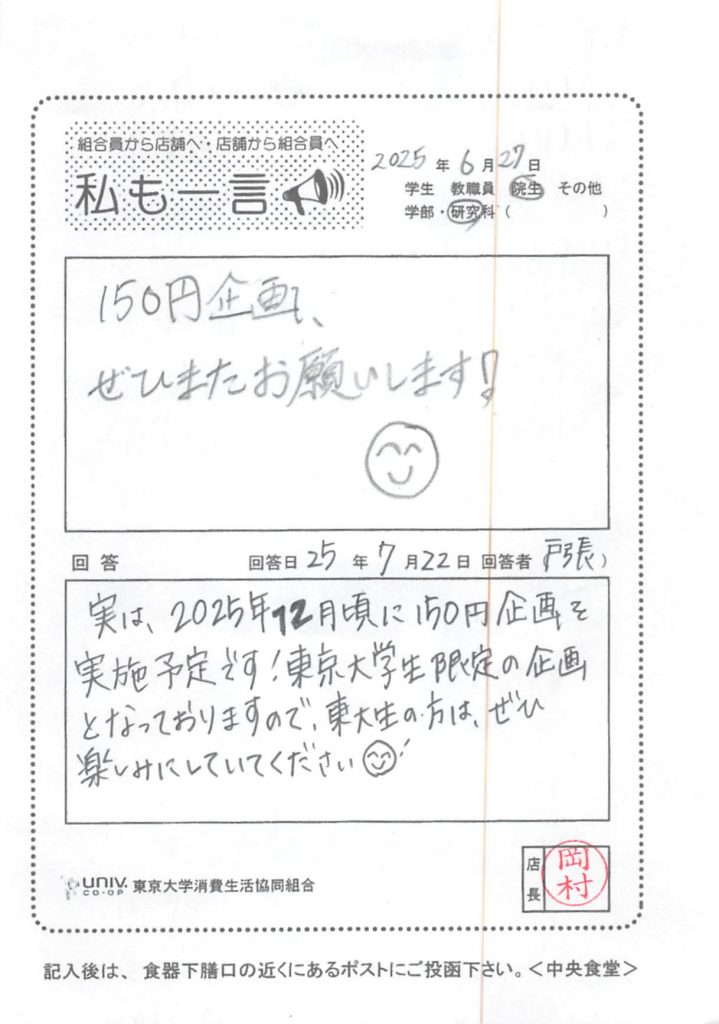 組合員から店舗へ・店舗から組合員へ
私も一言
2025年6月27日
学生 教職員 院生 その他
学部・研究科( )
150円企画、
ぜひまたお願いします!
回答 回答日 25年7月22日 回答者 戸張)
実は、2025年12月頃に150円企画を
実施予定です!東京大学生限定の企画
となっておりますので、東大生の方は、ぜひ
楽しみにしていてください!
店長 岡村
UNIV. CO-OP 東京大学消費生活協同組合
記入後は、食器下膳口の近くにあるポストにご投函下さい。<中央食堂>